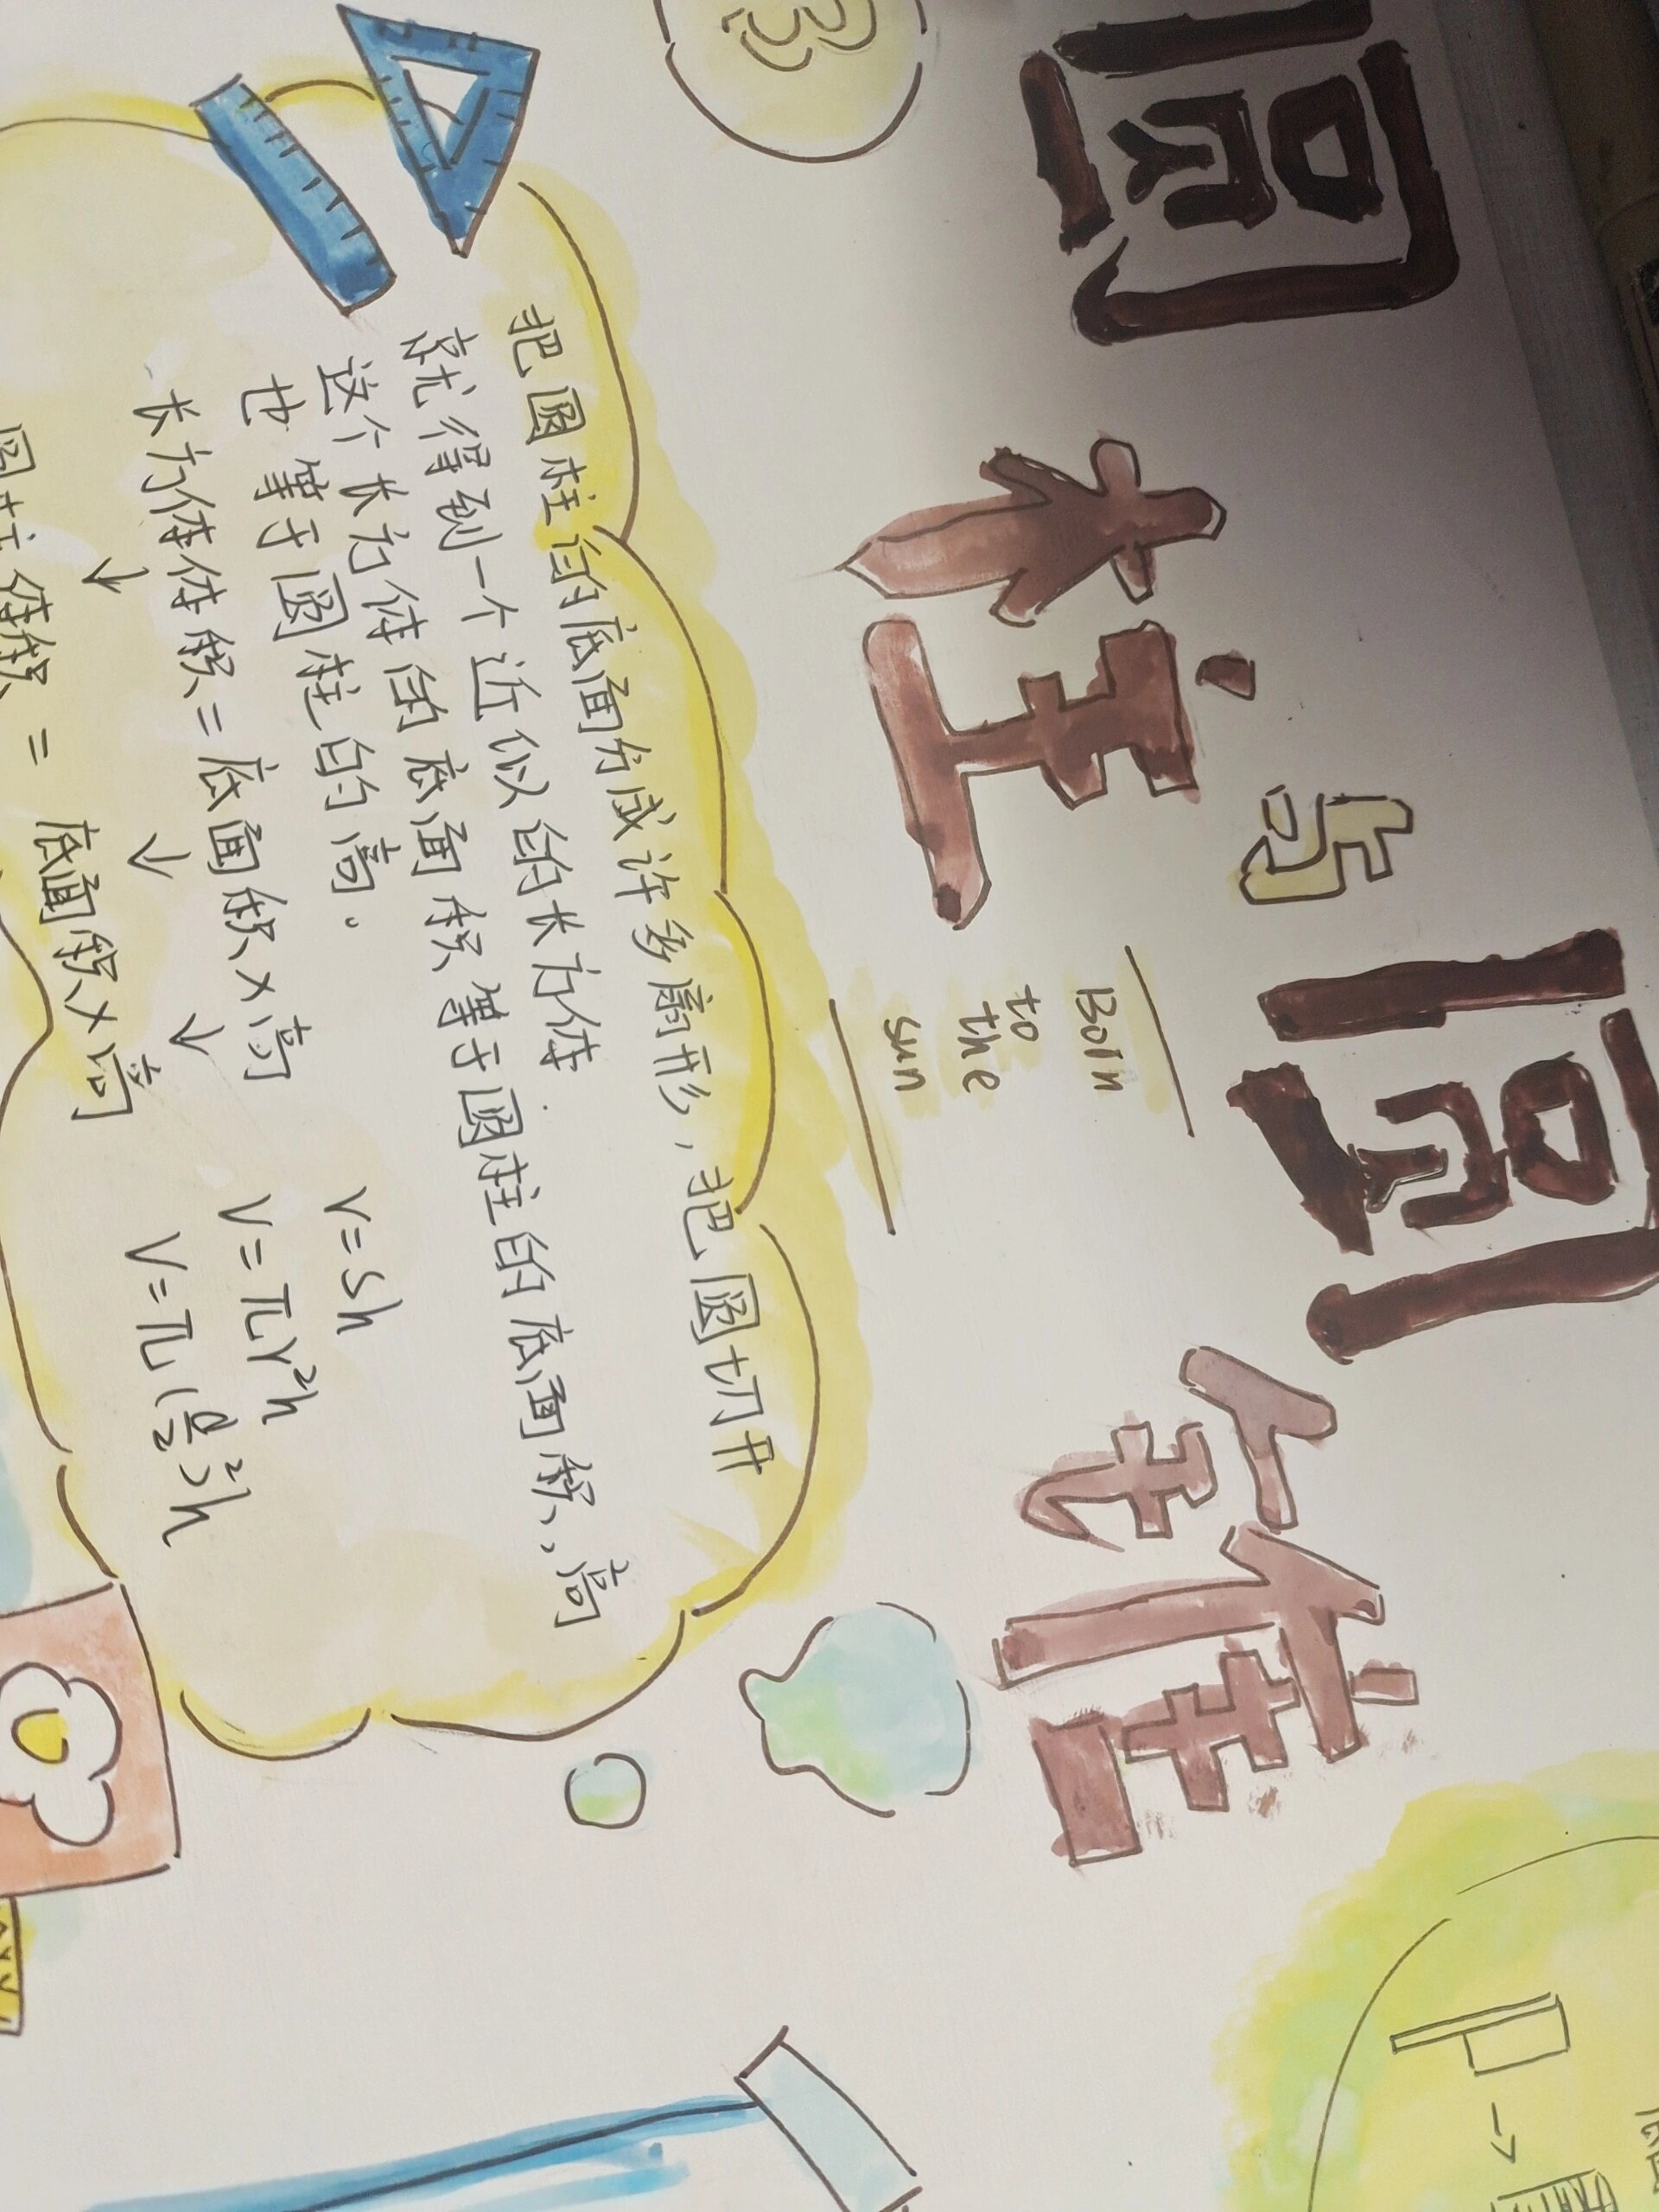 圆柱与圆锥
Born
to
the
sun
把圆柱的底面分成许多扇形，把圆切开
就得到一个近似的长方体
这个长方体的底面积等于圆柱的底面积，高
也等于圆柱的高。
长方体体积=底面积×高
↓ ↓ ↓
圆柱体积 = 底面积×高
V=Sh
V=πr²h
V=π(d/2)²h